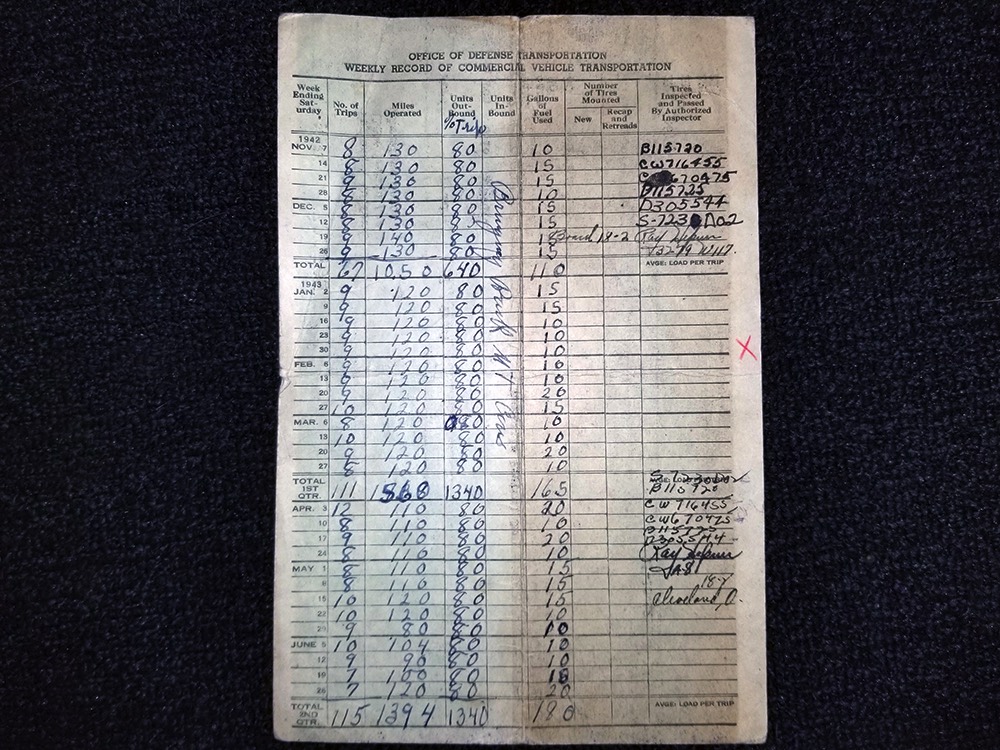 OFFICE OF DEFENSE TRANSPORTATION
WEEKLY RECORD OF COMMERCIAL VEHICLE TRANSPORTATION
Week Ending Saturday No. of Trips Miles Operated Units Out-Bound Units In-Bound Gallons of Fuel Used Number of Tires Mounted New Recap and Retreads Tires Inspected and Passed By Authorized Inspector
% Trip
1942
NOV. 7 8 130 80 10 B115720
14 8 130 80 15 CW716455
21 9 130 80 15 670475
28 8 130 80 10 D115725
DEC. 5 8 130 80 15 D305544
12 8 130 80 15
19 9 140 80 15 Board 18-2 Ray
26 9 130 80 15
TOTAL 67 1050 640 110 AVGE: LOAD PER TRIP
1943
JAN. 2 9 120 80 15
9 9 120 80 15
16 9 120 80 10
23 9 120 80 10
30 9 120 80 10
FEB. 6 9 120 80 10
13 9 120 80 10
20 9 120 80 20
27 10 120 80 15
MAR. 6 8 120 80 10
13 10 120 80 10
20 9 120 80 20
27 8 120 80 10
TOTAL 1ST QTR. 111 1560 1340 165 B115720
APR. 3 12 110 80 20 CW716455
10 8 110 80 10 CW670475
17 9 110 80 20 D305544
24 8 110 80 10 Ray
MAY 1 8 110 80 15
8 8 110 80 15
15 10 120 80 15 Cleveland, O.
22 10 120 80 10
29 9 80 80 10
JUNE 5 10 104 80 10
12 9 90 80 10
19 7 100 80 15
26 7 120 80 20
TOTAL 2ND QTR. 115 1394 1340 180 AVGE: LOAD PER TRIP
X